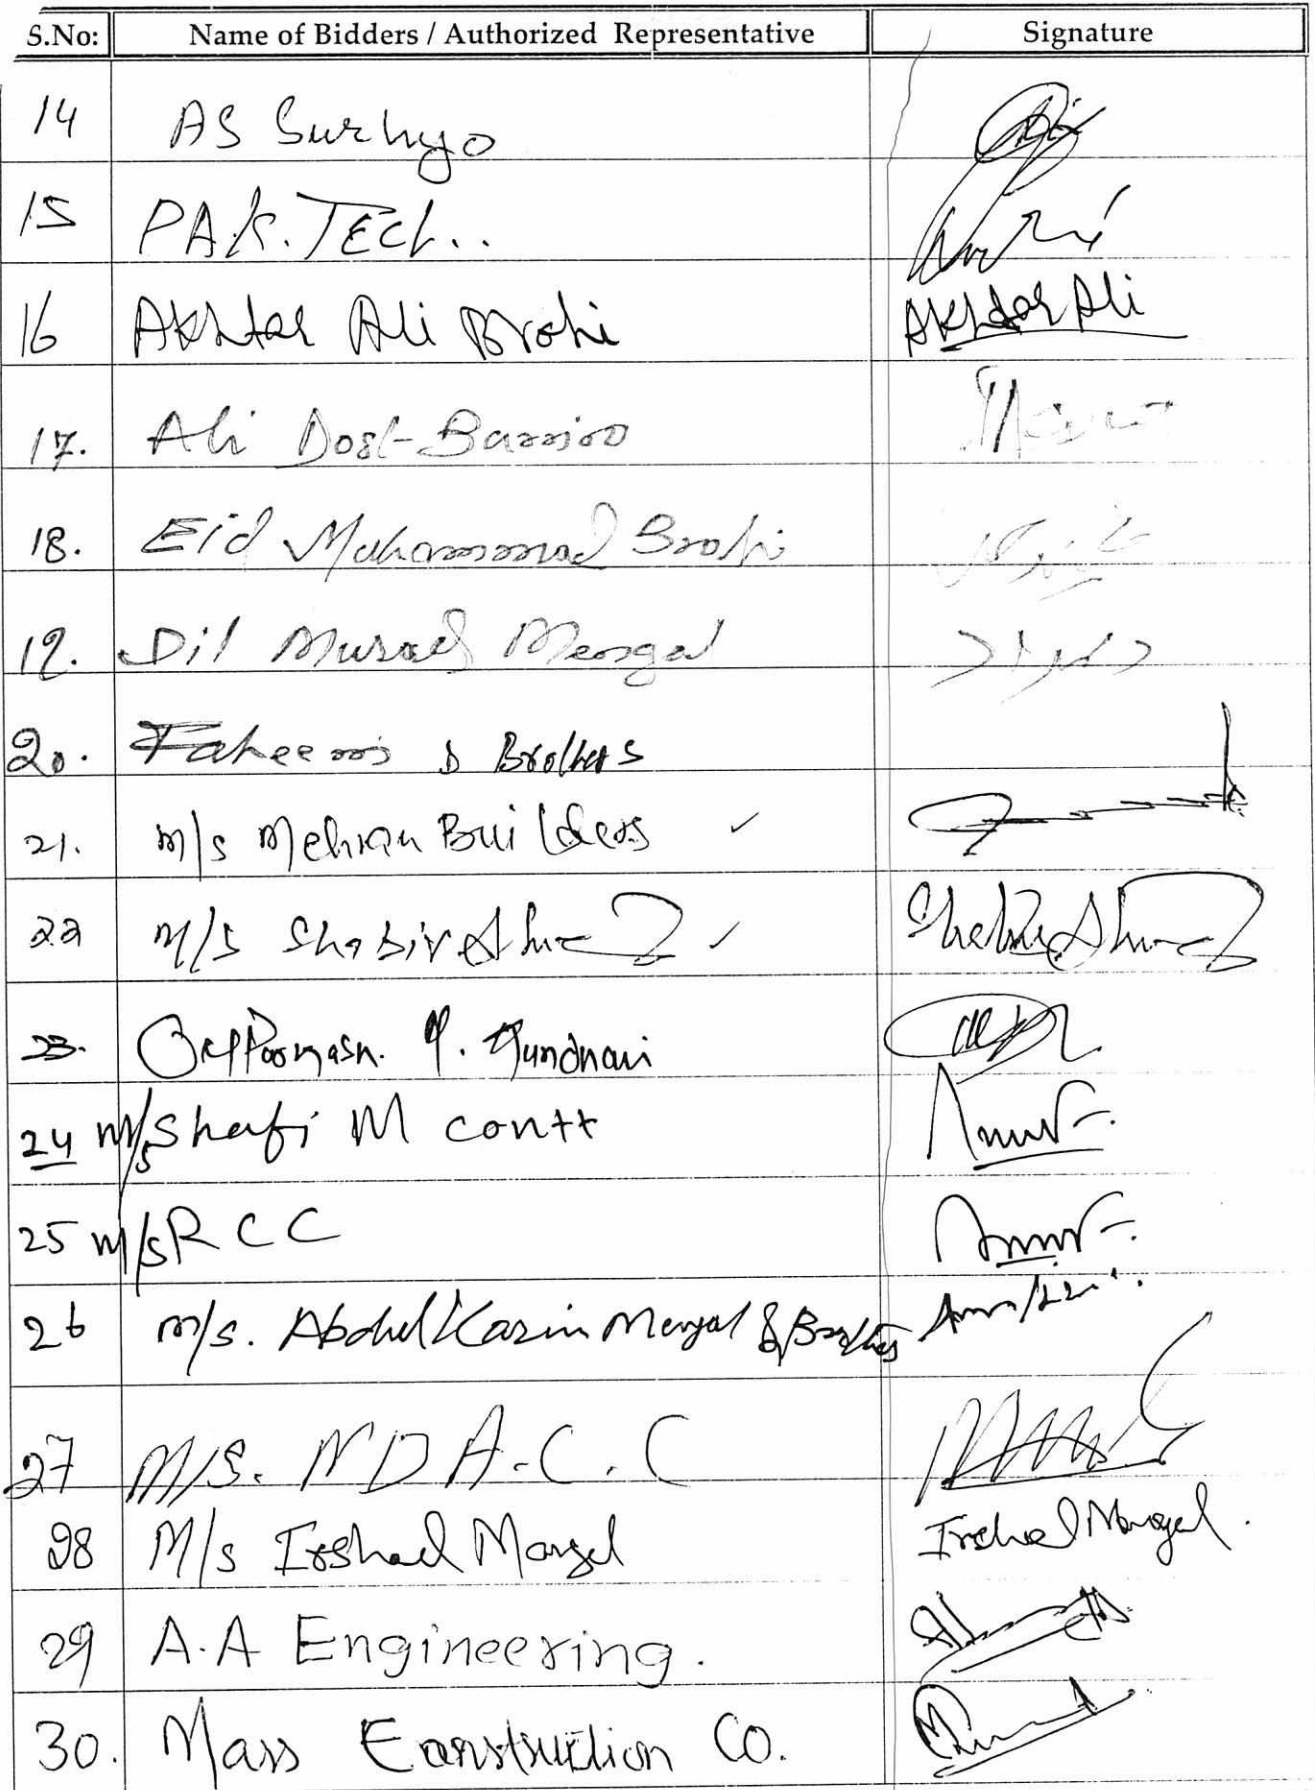 S.No: Name of Bidders / Authorized Representative Signature
14 AS Surhyo
15 PAK. TECH..
16 Akhtar Ali Brohi Akhtar Ali
17. Ali Dost
18. Eid Muhammad Brohi
19. Dil Murad Mengal دلمراد
20. Faheem & Brothers
21. M/s Mehran Builders ✓
22 M/s Shabir Ahmed ✓ Shabir Ahmed
23.
24 M/S Shafi M contt
25 M/S R C C
26 M/s. Abdul Karim Mengal & Brothers
27 M/S. N D A. C. C
28 M/s Irshad Mangel Irshad Mengal.
29 A.A Engineering.
30. Mass Construction CO.